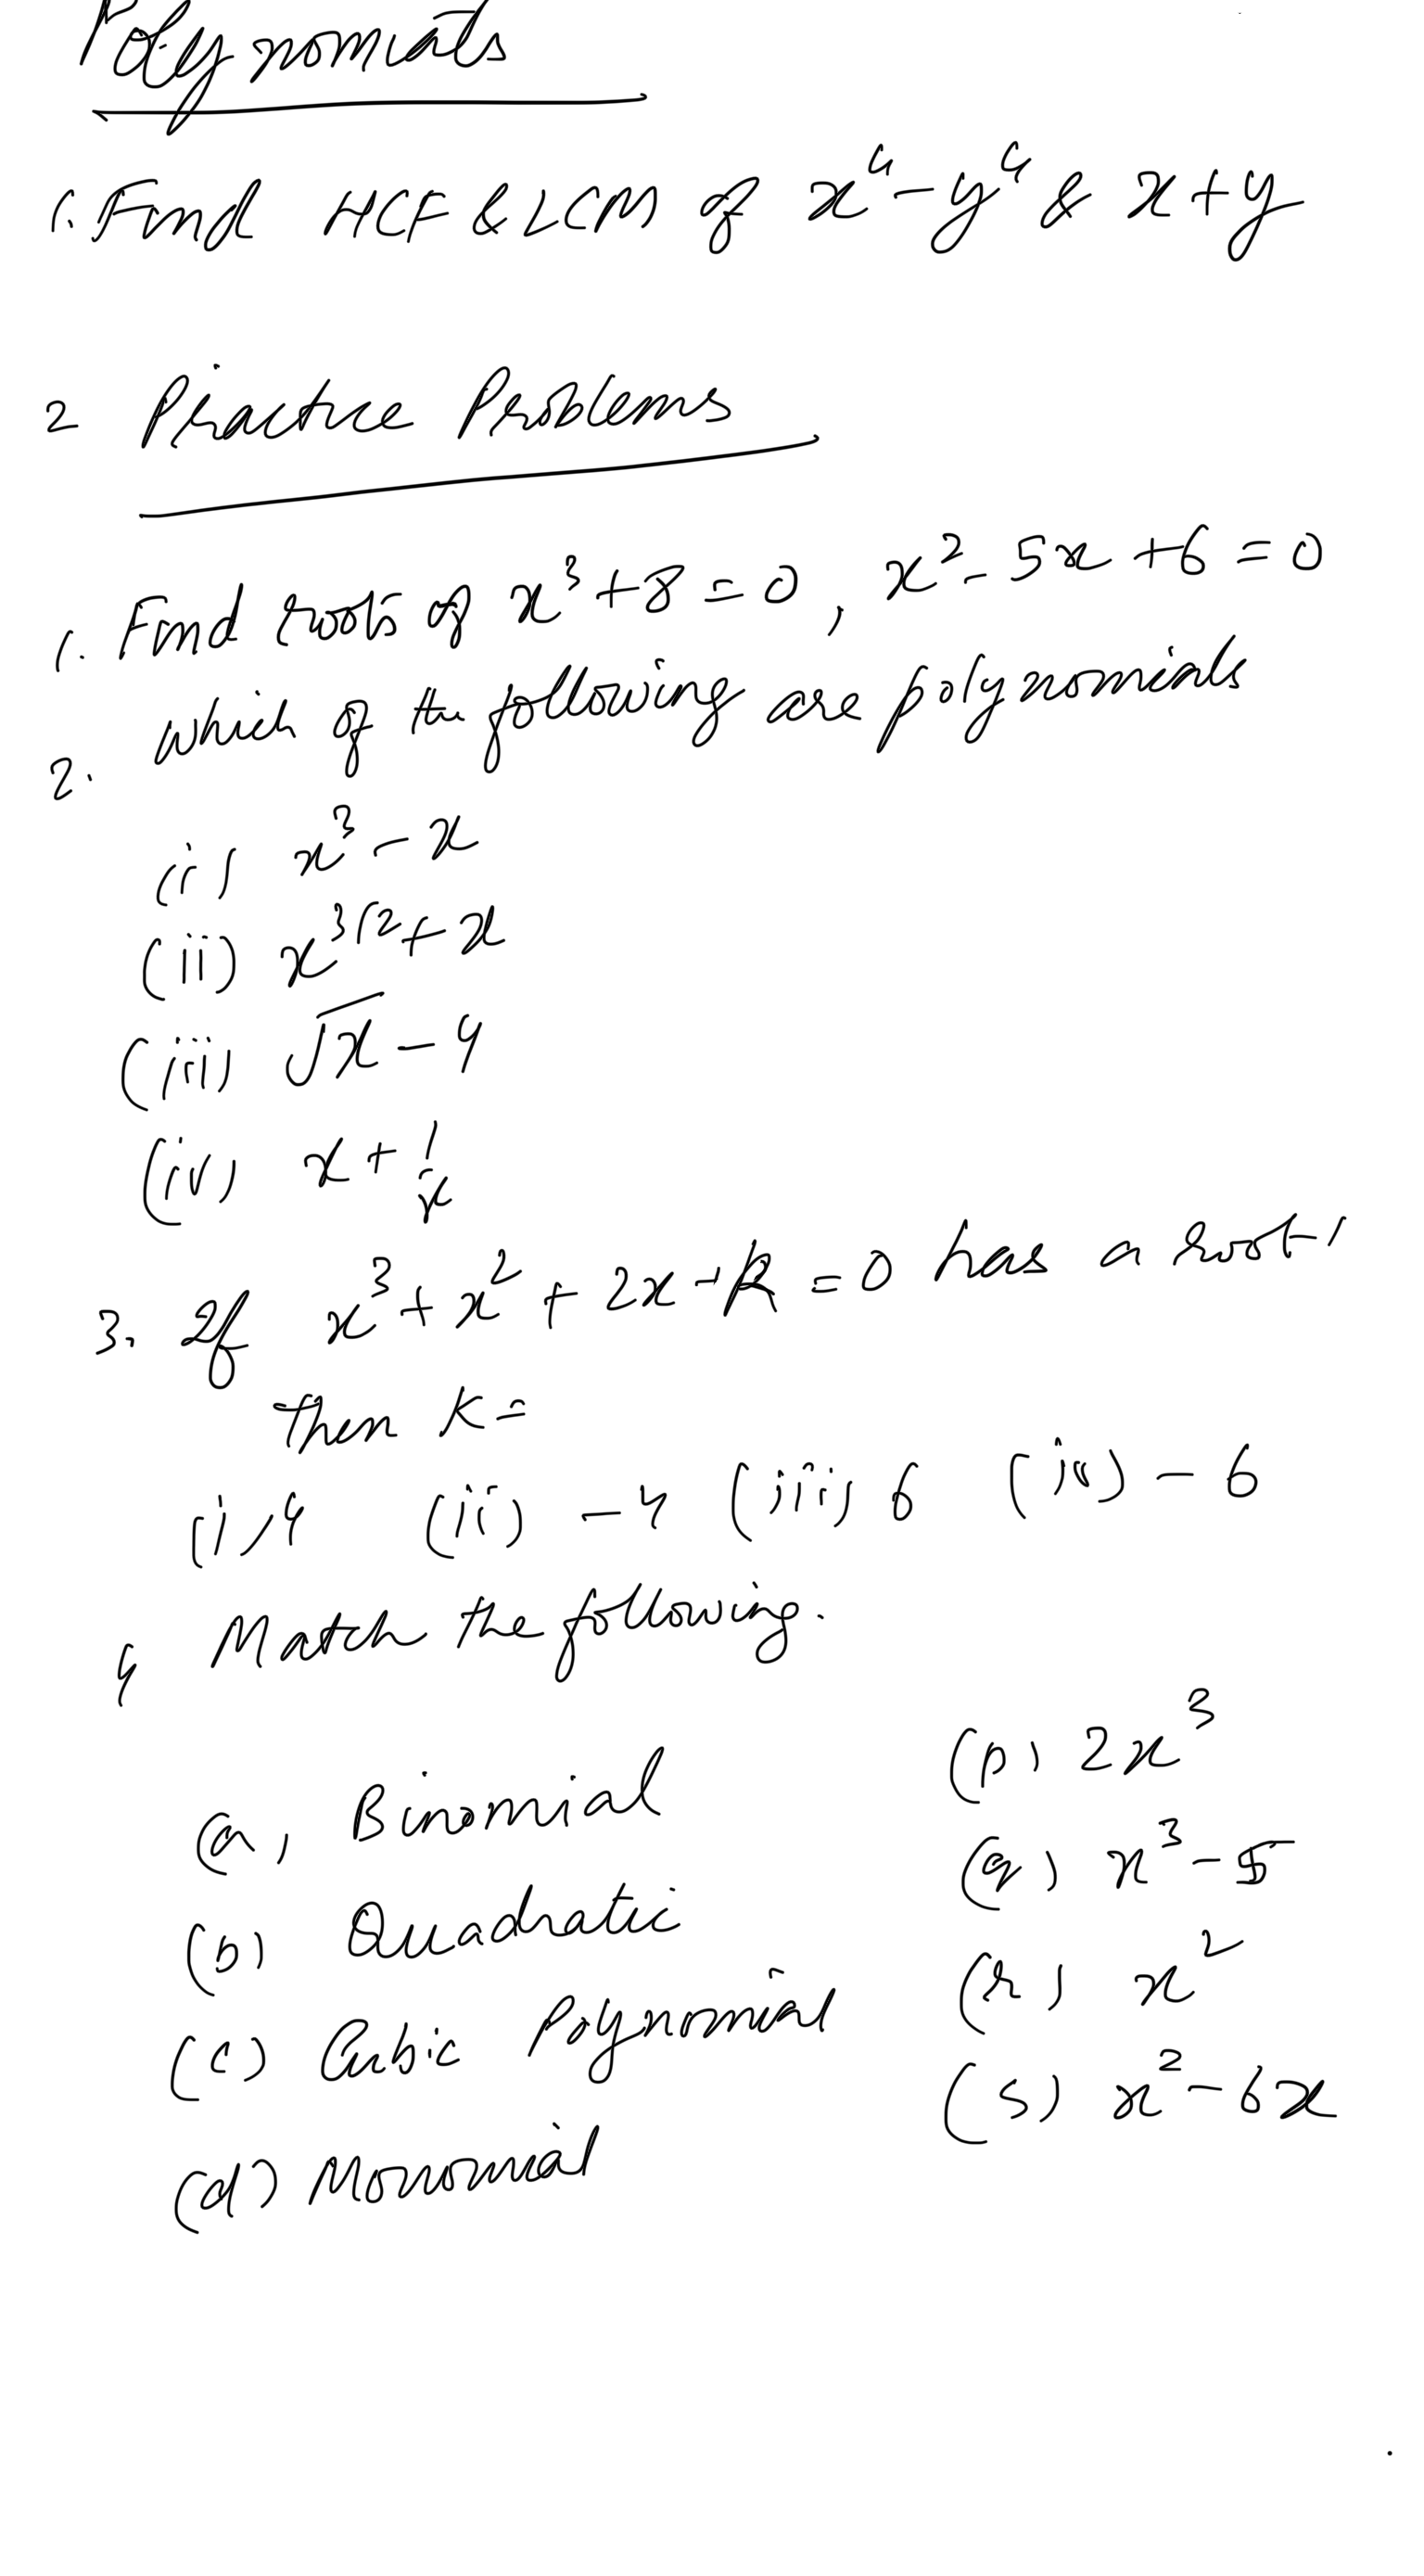 Polynomials
1. Find HCF & LCM of x⁴-y⁴ & x+y
2 Practice Problems
1. Find roots of x³+8=0, x²-5x+6=0
2. which of the following are polynomials
(i) x³-x
(ii) x^3/2+x
(iii) √x-4
(iv) x+1/x
3. If x³+x²+2x+k=0 has a root 1
then k=
(i) 4 (ii) -4 (iii) 6 (iv) -6
4 Match the following.
(a) Binomial (p) 2x³
(b) Quadratic (q) x³-5
(c) Cubic Polynomial (r) x²
(d) Monomial (s) x²-6x